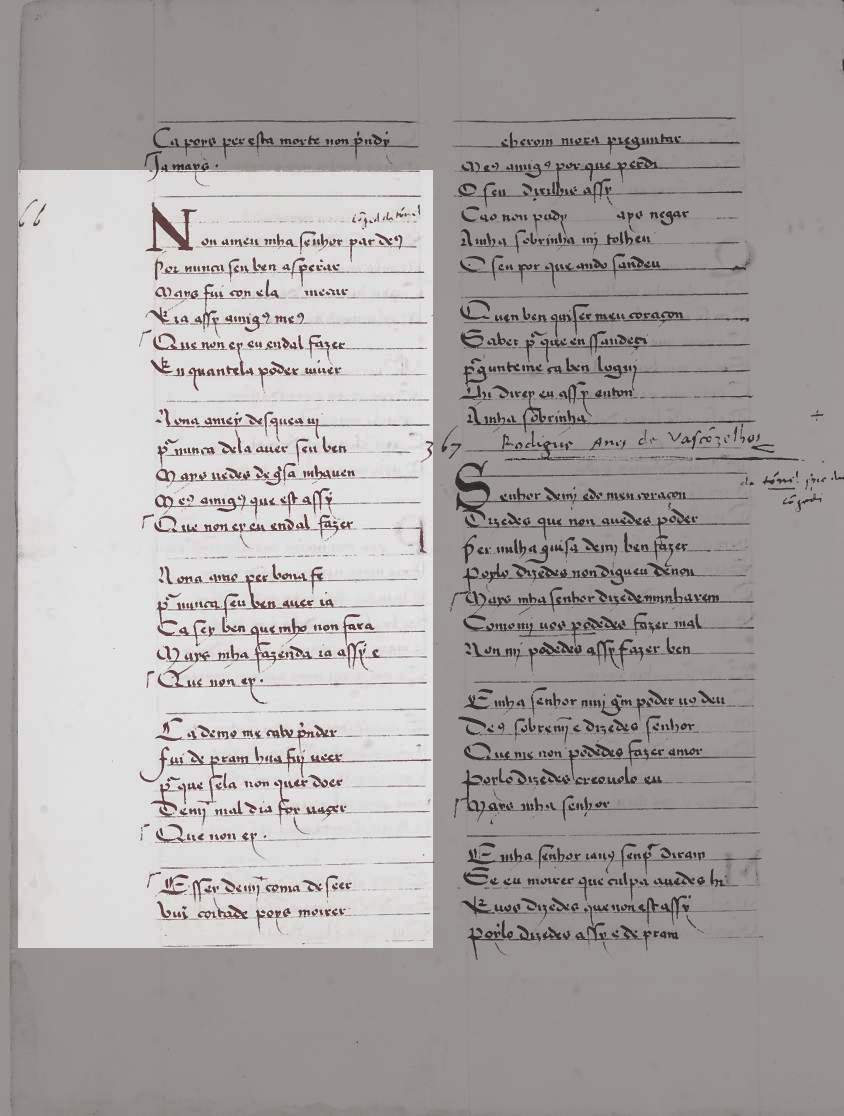 Ca poys per esta morte non p̃ndý
Ja mays.
66
Non ameu mha senhor par deꝯ
Por nunca seu ben asperar
Mays fui con ela mecar
E ia assy amigꝯ meꝯ
Que non ey eu endal fazer
En quantela poder uiuer
Nona amey desquea ui
p̃ nunca dela auer seu ben
Mays uedes de g̃sa mhauen
Meꝯ amigꝯ que est assy
Que non ey eu endal fazer
Nona amo per bona fe
p̃ nunca seu ben auer ia
Ca sey ben que mho non fara
Mays mha fazenda ia assy e
Que non ey.
Ca demo me cabo p̃nder
fui de pram hua fuj ueer
p̃ que sela non quer doer
Demj̃ mal dia foy naçer
Que non ey.
Esser demj̃ coma de seer
buj̃ coitade poys moirer
cherom mora preguntar
Meꝯ amigꝯ por que perdi
O seu dirilhis assy
Cao non pudy ays negar
A mha sobrinha mj tolheu
O seu por que ando sandeu
Quen ben quiser meu coraçon
Saber p̃ que en ssandeçi
p̃gunteme ca ben loguj
Lhi direy eu assy enton
A mha sobrinha
367 Rodigue Anes de Vascõzelhos
Senhor demj edo meu coraçon
Dizedes que non auedes poder
Per nulha guisa demj ben fazer
Poylo dizedes non digueu de non
Mays mha senhor dizedeminharem
Como mj uos podedes fazer mal
Non mj podedes assy fazer ben
E mha senhor muj g̃m poder uo deu
Deꝯ sobremj̃ e dizedes senhor
Que me non podedes fazer amor
Poylo dizedes creouolo eu
Mays mha senhor
E mha senhor iauꝯ senp̃ diram
Se eu moirer que culpa auedes hi
E uos dizedes que non est assy
Poylo dizedes assy e de pram